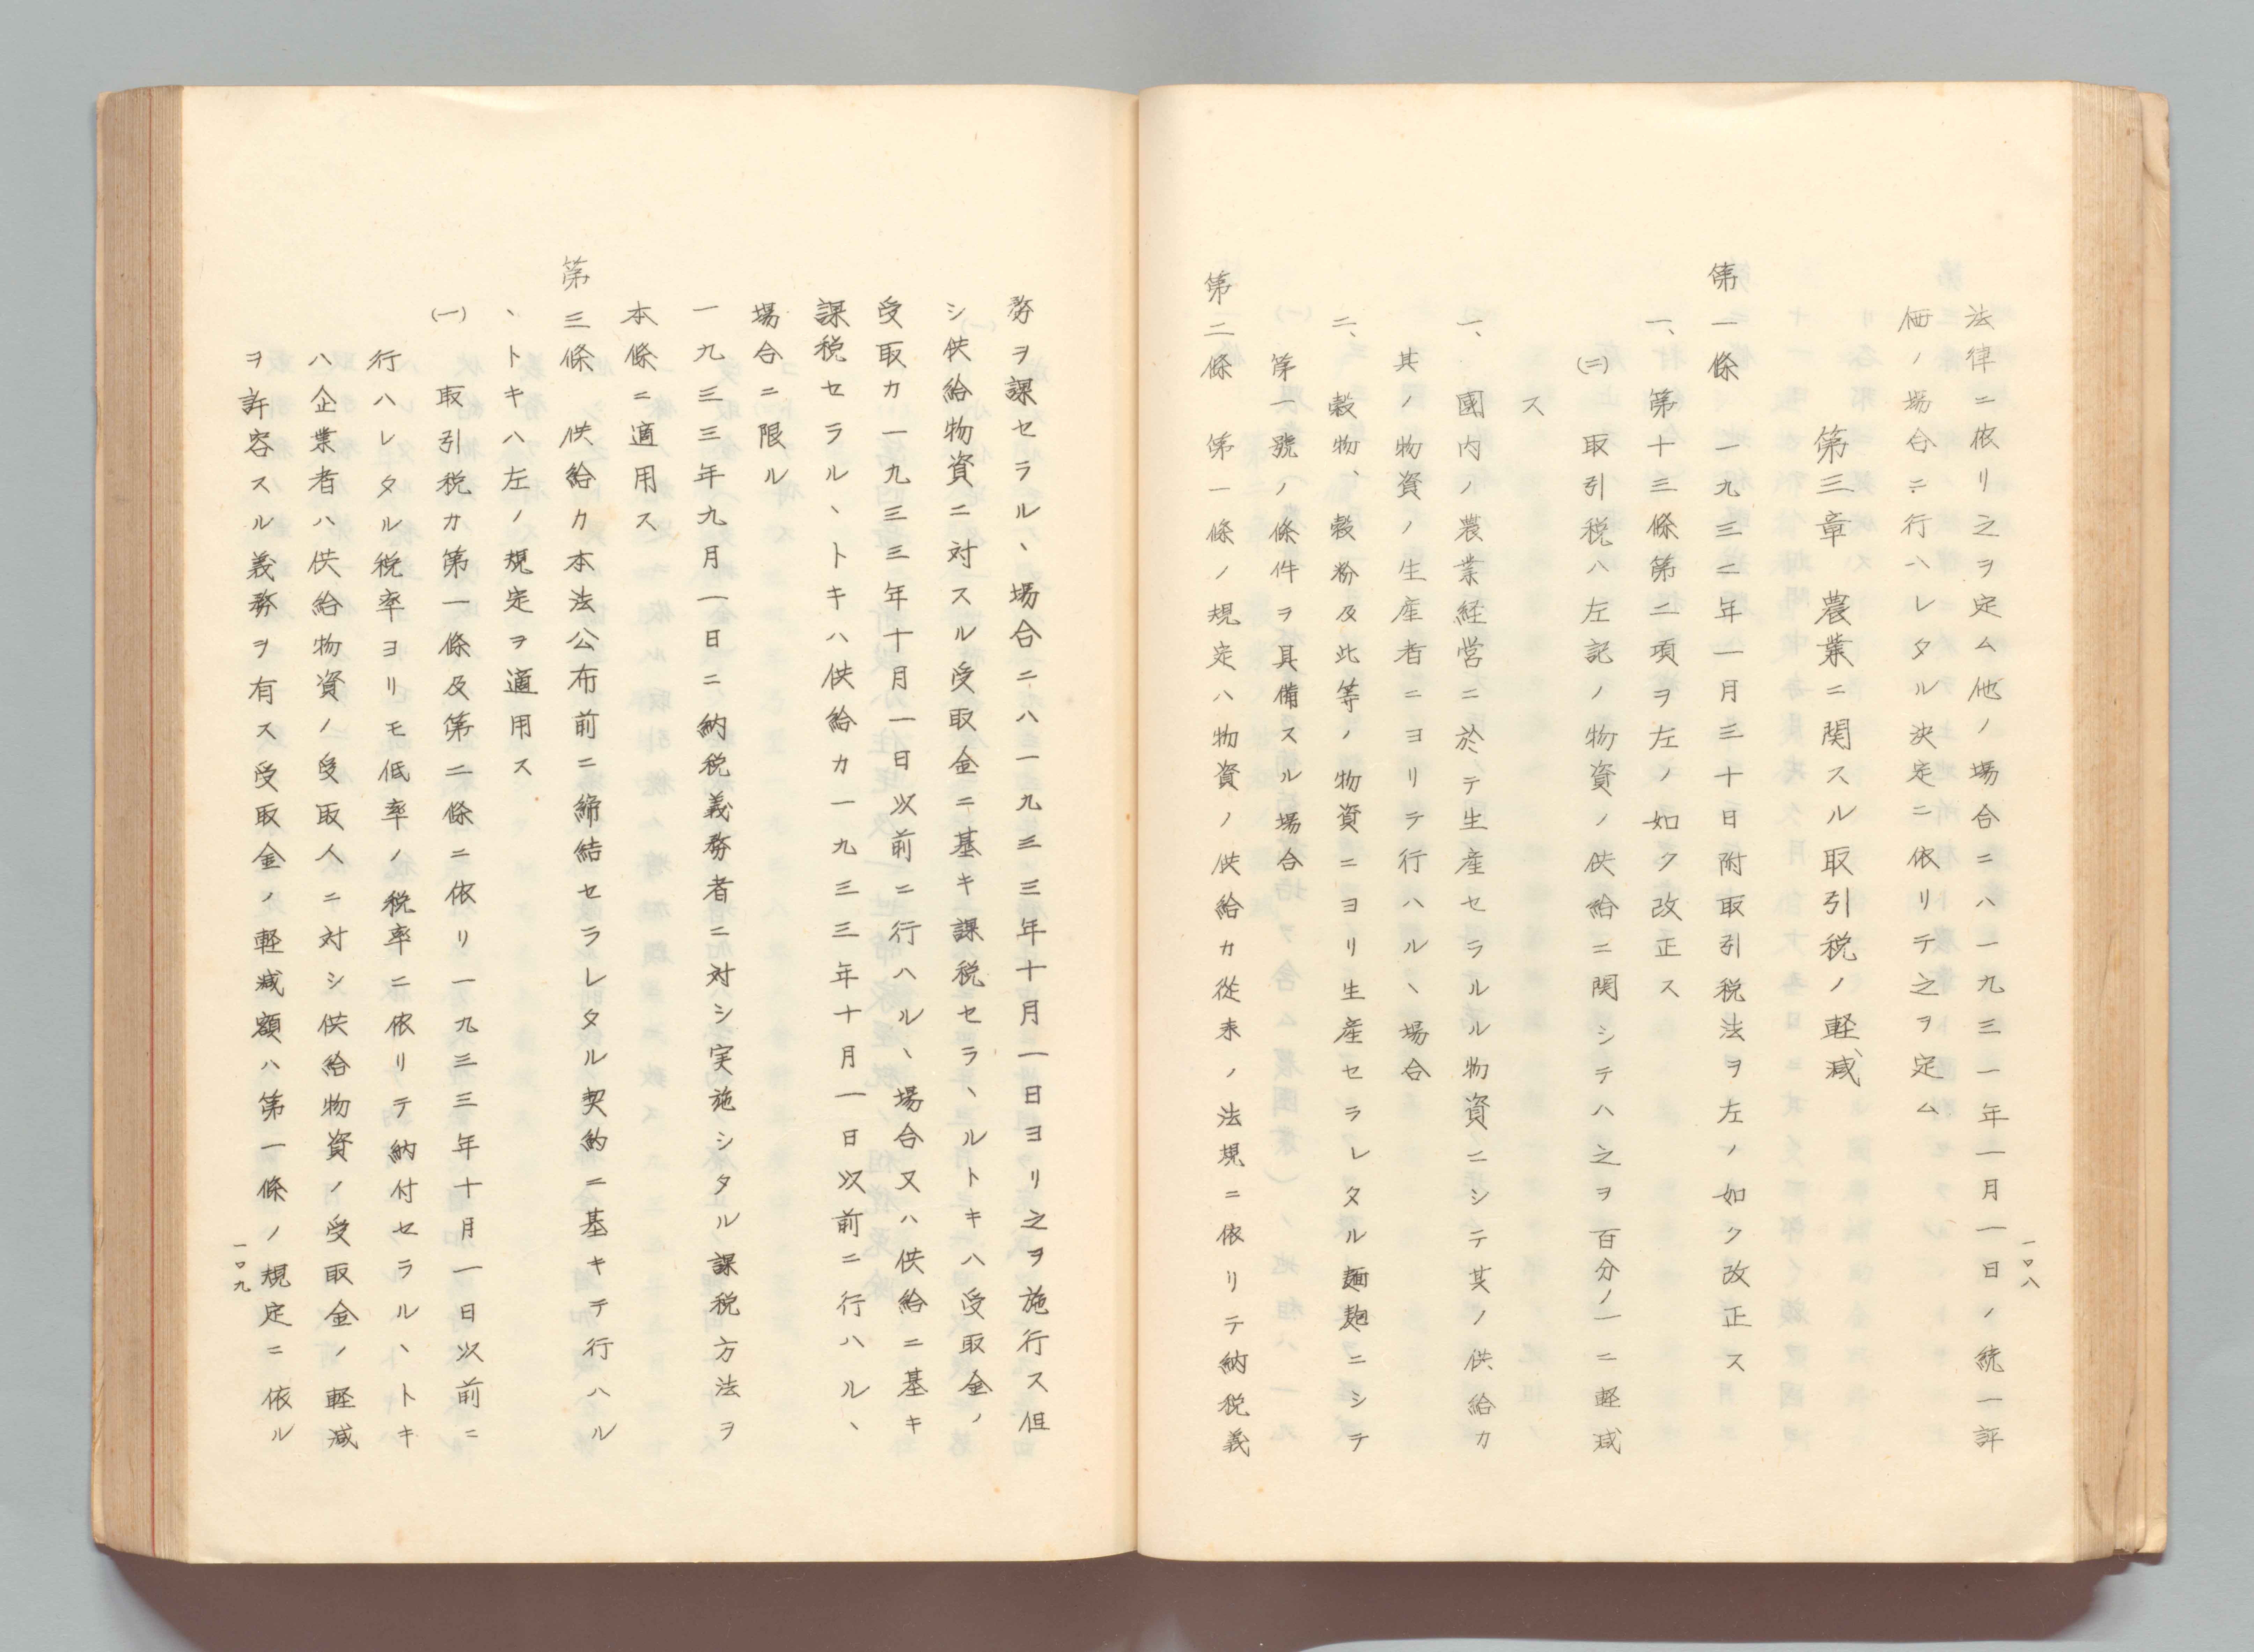 法律ニ依リ之ヲ定ム他ノ場合ニハ一九三一年一月一日ノ統一評
価ノ場合ニ行ハレタル決定ニ依リテ之ヲ定ム
第三章　農業ニ関スル取引税ノ軽減
第一條　一九三二年一月三十日附取引税法ヲ左ノ如ク改正ス
一、第十三條第二項ヲ左ノ如ク改正ス
(二)　取引税ハ左記ノ物資ノ供給ニ関シテハ之ヲ百分ノ一ニ軽減
ス
一、國内ノ農業経営ニ於テ生産セラルル物資ニシテ其ノ供給カ
其ノ物資ノ生産者ニヨリテ行ハルヽ場合
二、穀物、穀粉及此等ノ物資ニヨリ生産セラレタル麺麭ニシテ
第一號ノ條件ヲ具備スル場合
第二條　第一條ノ規定ハ物資ノ供給カ從来ノ法規ニ依リテ納税義
一〇八
務ヲ課セラルヽ場合ニハ一九三三年十月一日ヨリ之ヲ施行ス但
シ供給物資ニ対スル受取金ニ基キ課税セラヽルトキハ受取金ノ
受取カ一九三三年十月一日以前ニ行ハルヽ場合又ハ供給ニ基キ
課税セラルヽトキハ供給カ一九三三年十月一日以前ニ行ハルヽ
場合ニ限ル
一九三三年九月一日ニ納税義務者ニ対シ実施シタル課税方法ヲ
本條ニ適用ス
第三條　供給カ本法公布前ニ締結セラレタル契約ニ基キテ行ハル
ヽトキハ左ノ規定ヲ適用ス
(一)　取引税カ第一條及第二條ニ依リ一九三三年十月一日以前ニ
行ハレタル税率ヨリモ低率ノ税率ニ依リテ納付セラルヽトキ
ハ企業者ハ供給物資ノ受取人ニ対シ供給物資ノ受取金ノ軽減
ヲ許容スル義務ヲ有ス受取金ノ軽減額ハ第一條ノ規定ニ依ル
一〇九